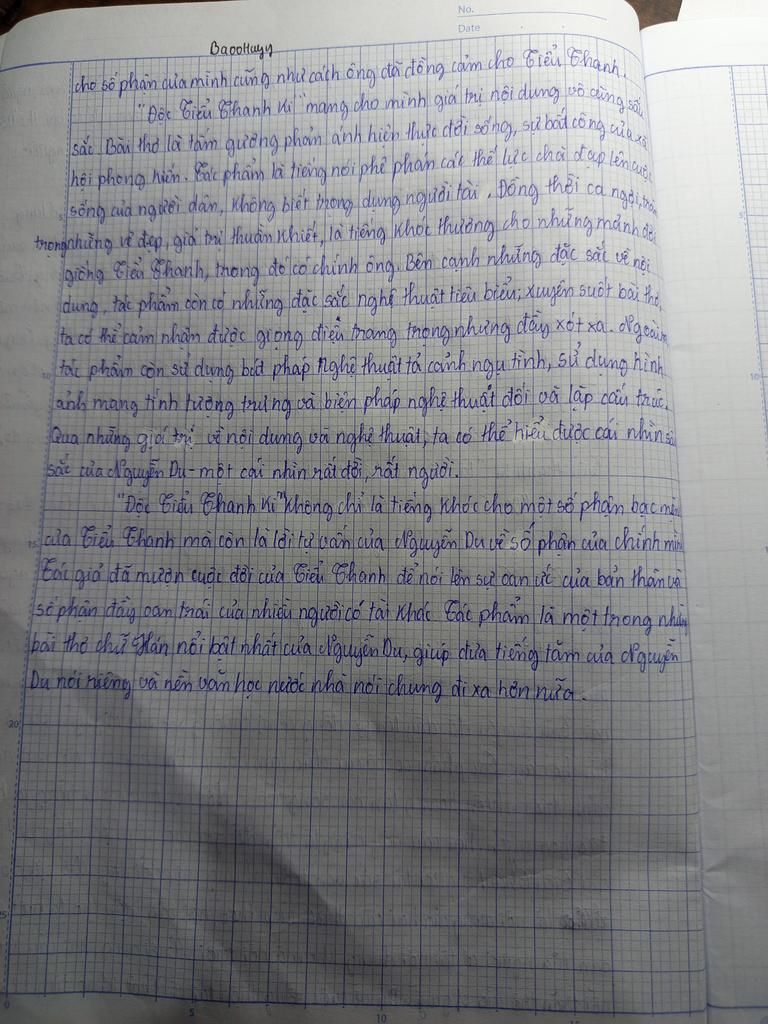 No.
Date
BaooHuyy
cho số phận của mình cũng như cách ông đã đồng cảm cho Tiểu Thanh.
"Độc Tiểu Thanh Kí" mang cho mình giá trị nội dung vô cùng sâu
sắc. Bài thơ là tấm gương phản ánh hiện thực đời sống, sự bất công của xã
hội phong kiến. Tác phẩm là tiếng nói phê phán các thế lực chà đạp lên cuộc
sống của người dân, không biết trọng dụng người tài. Đồng thời ca ngợi, trân
trọng những vẻ đẹp, giá trị thuần khiết, là tiếng khóc thương cho những mảnh đời
giống Tiểu Thanh, trong đó có chính ông. Bên cạnh những đặc sắc về nội
dung, tác phẩm còn có những đặc sắc nghệ thuật tiêu biểu; xuyên suốt bài thơ,
ta có thể cảm nhận được giọng điệu trang trọng nhưng đầy xót xa. Ngoài ra
tác phẩm còn sử dụng bút pháp nghệ thuật tả cảnh ngụ tình, sử dụng hình
ảnh mang tính tượng trưng và biện pháp nghệ thuật đối và lặp cấu trúc.
Qua những giá trị về nội dung và nghệ thuật, ta có thể hiểu được cái nhìn sâu
sắc của Nguyễn Du - một cái nhìn rất đời, rất người.
"Độc Tiểu Thanh Kí" không chỉ là tiếng khóc cho một số phận bạc mệnh
của Tiểu Thanh mà còn là lời tự vấn của Nguyễn Du về số phận của chính mình
Tác giả đã mượn cuộc đời của Tiểu Thanh để nói lên sự oan ức của bản thân và
số phận đầy oan trái của nhiều người có tài khác. Tác phẩm là một trong những
bài thơ chữ Hán nổi bật nhất của Nguyễn Du, giúp đưa tiếng tăm của Nguyễn
Du nói riêng và nền văn học nước nhà nói chung đi xa hơn nữa.